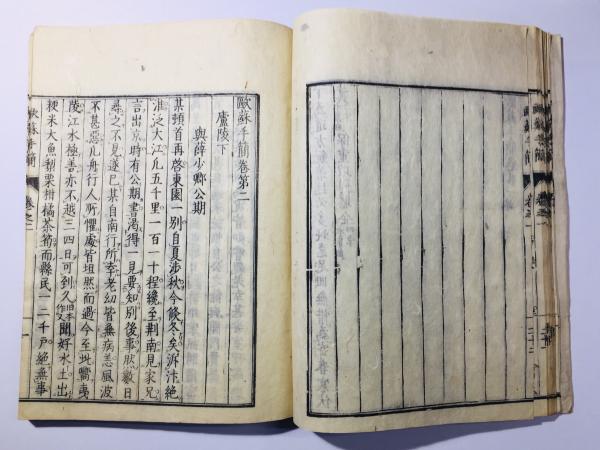 歐蘇手簡
卷之一
歐蘇手簡卷第二
廬陵下
與薛少卿公期
某頓首再啓東園一別自夏涉秋今倏冬矣泝汴絶
淮泛大江凡五千里一百一十程纔至荆南見家兄
言出京時有公期書渇得一見要知別後事然數日
尋之不見遂已某自南行所幸老幼皆無病恙風波
不甚惡凡舟行人所懼處皆坦然而過今至此嚮夷
陵江水極善亦不越三四日可到久旧本作又聞好水土出
粳米大魚梨栗柑橘茶筍而縣民一二千戸絶無事
歐蘇手簡
卷之二
一